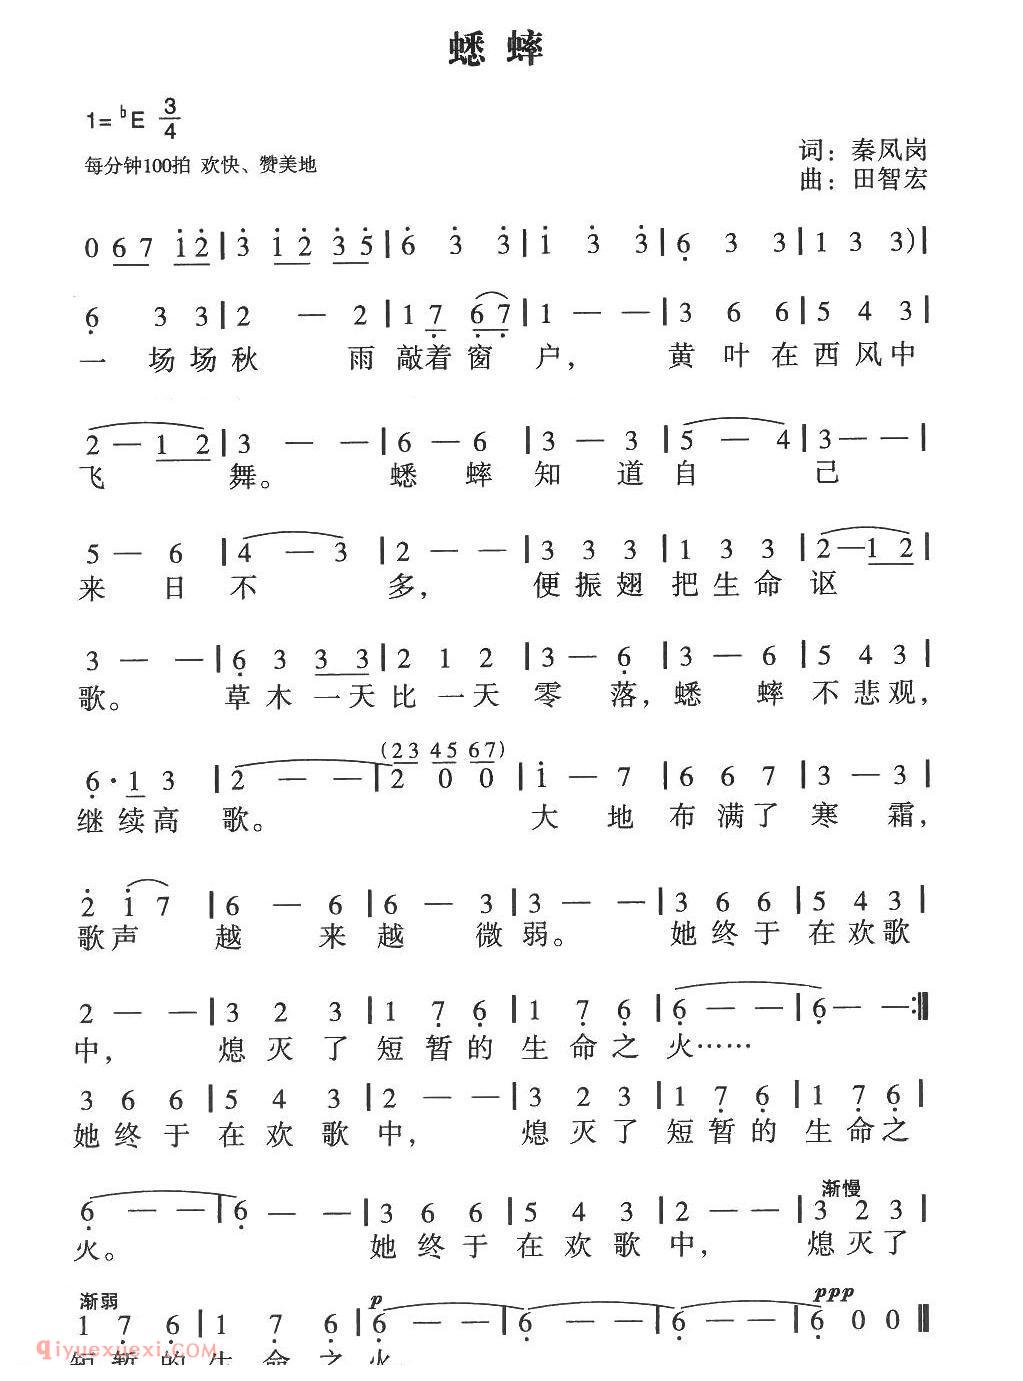 蟋蟀
1=♭E 3/4
每分钟100拍 欢快、赞美地
词：秦凤岗
曲：田智宏
0 6 7 1 2 | 3 1 2 3 5 | 6 3 3 | 1 3 3 | 6 3 3 | 1 3 3 )|
6 3 3 | 2 — 2 | 1 7 6 7 | 1 — — | 3 6 6 | 5 4 3 |
一 场 场 秋 雨 敲着 窗 户， 黄 叶 在 西 风 中
2 — 1 2 | 3 — — | 6 — 6 | 3 — 3 | 5 — 4 | 3 — — |
飞 舞。 蟋 蟀 知 道 自 己
5 — 6 | 4 — 3 | 2 — — | 3 3 3 | 1 3 3 | 2 — 1 2 |
来 日 不 多， 便 振 翅 把 生 命 讴
3 — — | 6 3 3 3 | 2 1 2 | 3 — 6 | 3 — 6 | 5 4 3 |
歌。 草 木 一 天 比 一 天 零 落，蟋 蟀 不 悲 观，
(2 3 4 5 6 7)
6 · 1 3 | 2 — — | 2 0 0 | 1 — 7 | 6 6 7 | 3 — 3 |
继 续 高 歌。 大 地 布 满 了 寒 霜，
2 1 7 | 6 — 6 | 6 — 3 | 3 — — | 3 6 6 | 5 4 3 |
歌 声 越 来 越 微 弱。 她 终 于 在 欢 歌
2 — — | 3 2 3 | 1 7 6 | 1 7 6 | 6 — — | 6 — — :||
中， 熄 灭 了 短 暂 的 生 命 之 火……
3 6 6 | 5 4 3 | 2 — — | 3 2 3 | 1 7 6 | 1 7 6 |
她 终 于 在 欢 歌 中， 熄 灭 了 短 暂 的 生 命 之
渐慢
6 — — | 6 — — | 3 6 6 | 5 4 3 | 2 — — | 3 2 3 |
火。 她 终 于 在 欢 歌 中， 熄 灭 了
渐弱 p ppp
1 7 6 | 1 7 6 | 6 — — | 6 — — | 6 — — | 6 0 0 ||
qiyuexuexi.com
短 暂 的 生 命 之 火。